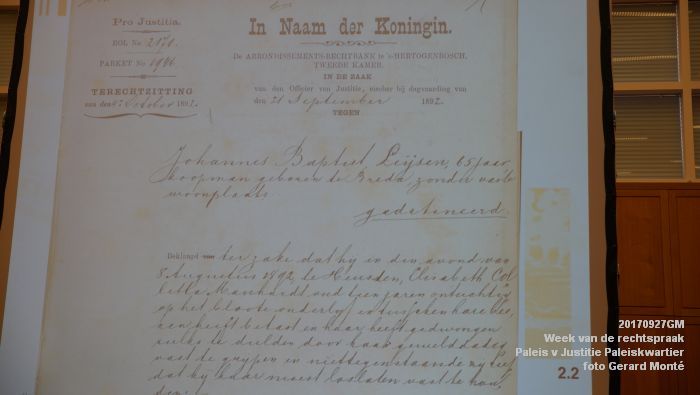 Pro Justitia.
ROL No 2171.
PARKET No 1946
TERECHTZITTING
van den 4n October 1892.
In Naam der Koningin.
De ARRONDISSEMENTS-RECHTBANK te 's-HERTOGENBOSCH,
TWEEDE KAMER,
IN DE ZAAK
van den Officier van Justitie, eischer bij dagvaarding van
den 21 September 1892.
TEGEN
Johannes Baptist Leijsen, 65 jaar
koopman geboren te Breda, zonder vaste
woonplaats
gedetineerd.
Beklaagd van ter zake dat hij in den avond van
8 Augustus 1892, te Heusden, Elisabeth Col
letta Marchardt, oud tien jaren ontuchtig
op het bloote onderlijf en tusschen hare bee
nen heeft betast en haar heeft gedwongen
zulks te dulden door haar gewelddadig
vast te grijpen en niettegenstaande zij riep
dat hij haar moest loslaten vast te hou
den;
20170927GM
Week van de rechtspraak
Paleis v Justitie Paleiskwartier
foto Gerard Monté
2.2